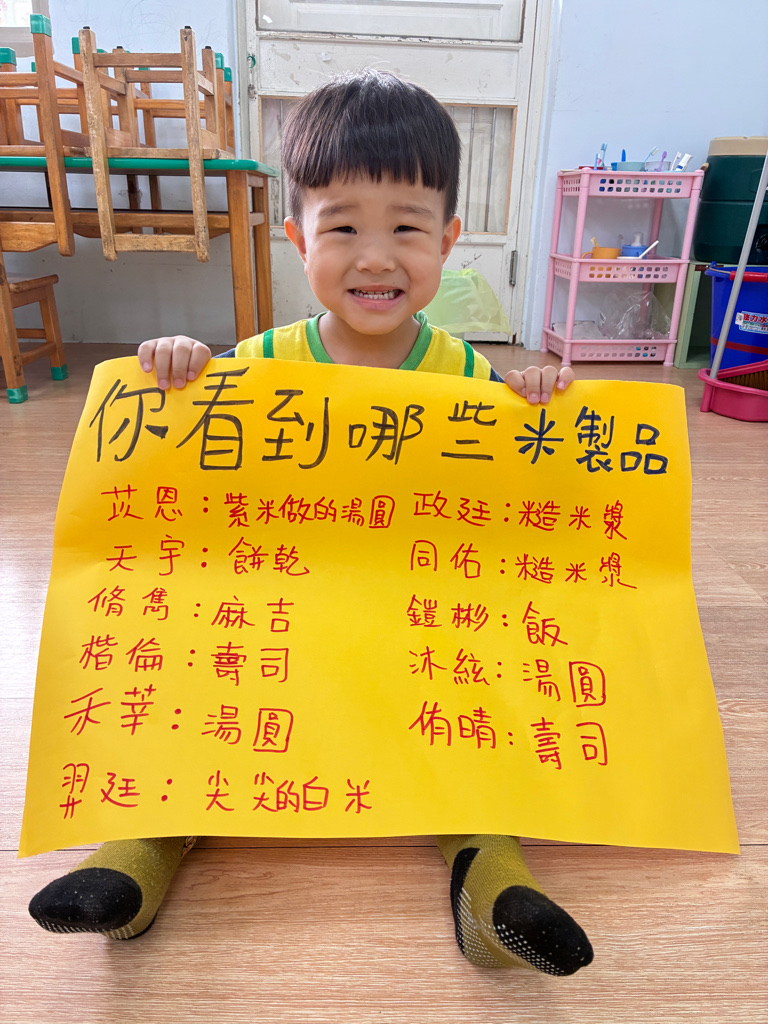 你看到哪些米製品
苡恩：紫米做的湯圓
天宇：餅乾
脩雋：麻吉
楷倫：壽司
禾莘：湯圓
羿廷：尖尖的白米
政廷：糙米漿
同佑：糙米漿
鎧彬：飯
沐絃：湯圓
侑晴：壽司
強力水